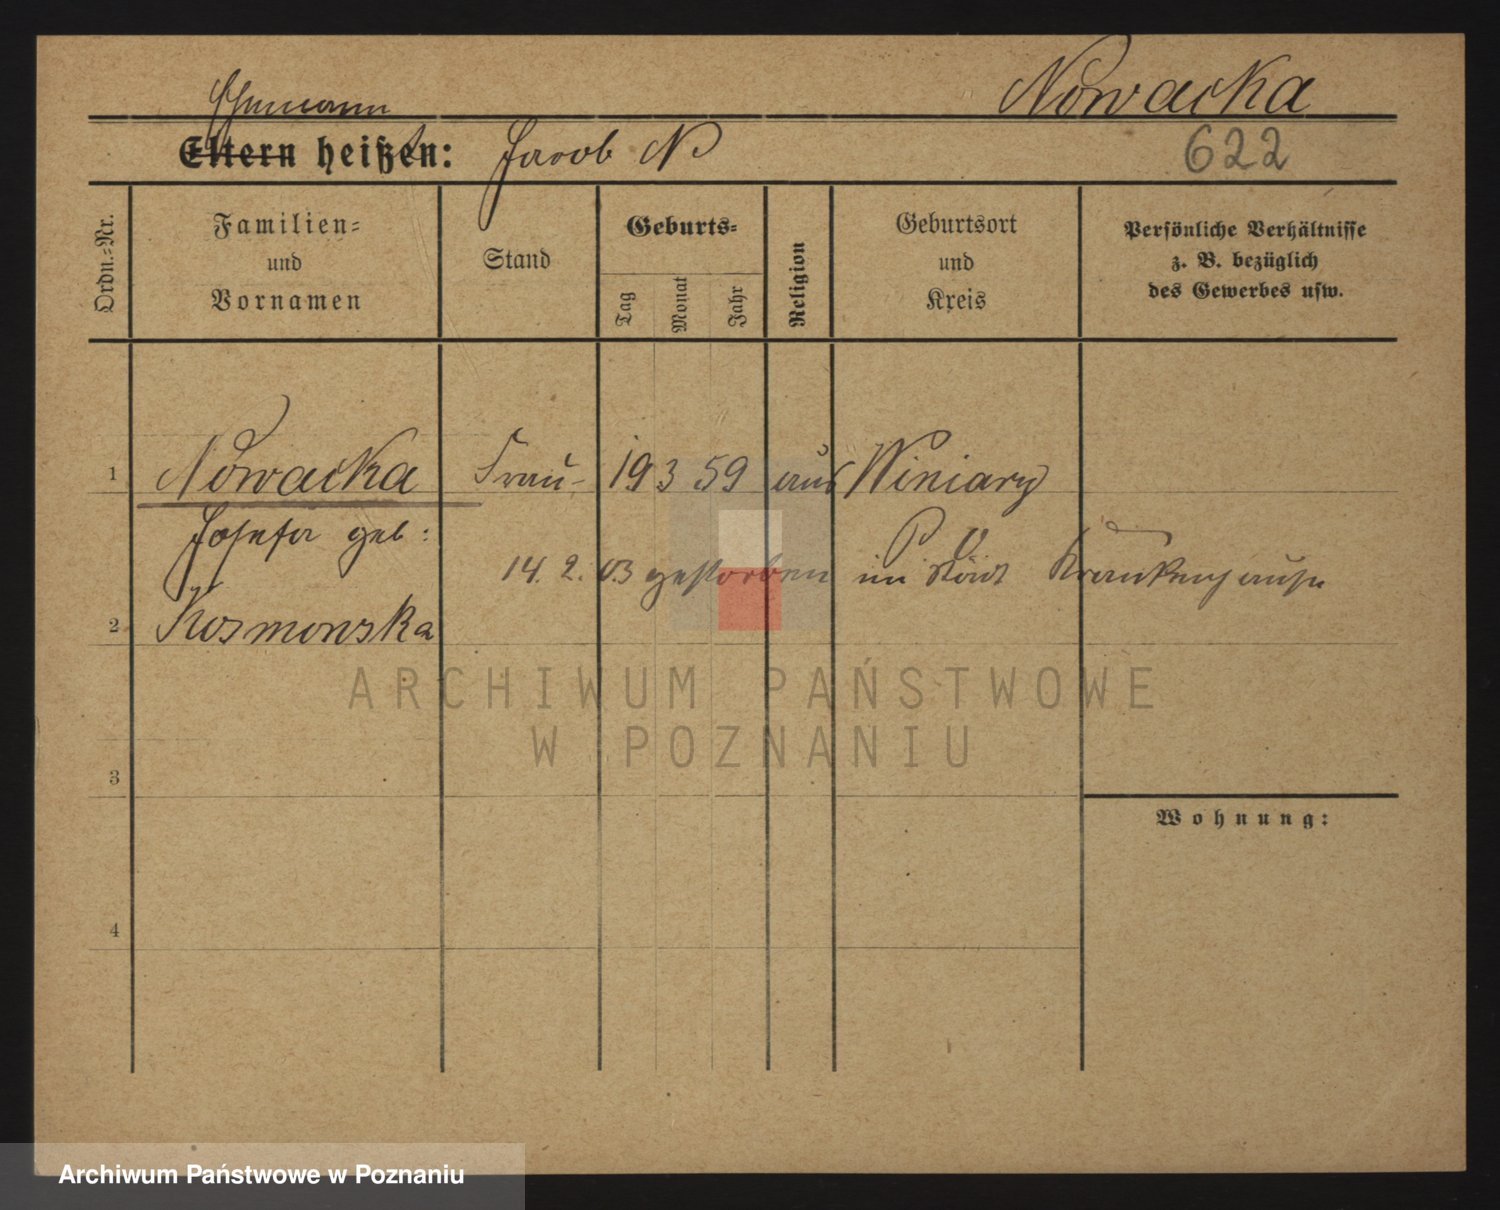 Ehemann
Nowacka
Eltern heißen: Jacob N
622
Ordn.-Nr.
Familien- und Vornamen
Stand
Geburts-
Tag
Monat
Jahr
Religion
Geburtsort und Kreis
Persönliche Verhältnisse
z. B. bezüglich
des Gewerbes usw.
1 Nowacka Frau 19 3 59 aus Winiary
Josefa geb:
P O
14. 2. 03 gestorben im Städt Krankenhause
2 Kosmowska
ARCHIWUM PAŃSTWOWE
W POZNANIU
3
Wohnung:
4
Archiwum Państwowe w Poznaniu